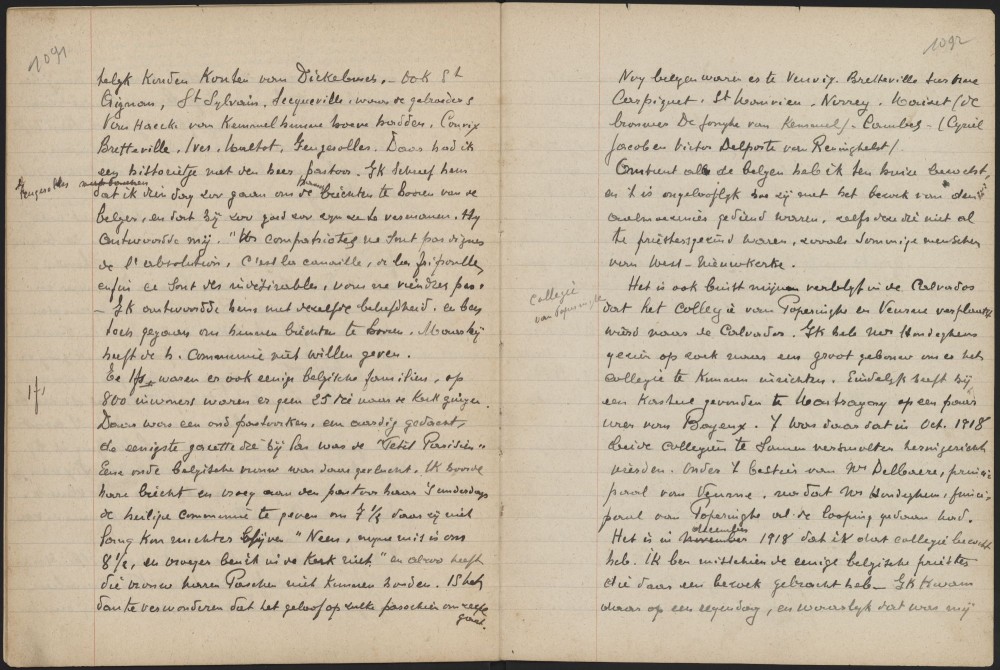 1091
helyk konden Konten van Dickebusch, - ook St
Aignan, St Sylvain, Secqueville, waar de gebroeders
Van Haecke van Kemmel hunne hoeve hadden, Conrix
Bretteville, Ives, Fengerolles. Daar had ik
een historietje met den heer pastoor. Ik schreef hem
Fengerolles
dat ik dien dag zou gaan om de biechten te hooren van de
belgen, en dat hij zou goed zijn ze te vermanen. Hij
antwoordde mij. "Vos compatriotes ne sont pas dignes
de l'absolution, c'est la canaille, de la fripouille,
enfin ce sont des indésirables, vous ne viendrez pas.
- Ik antwoordde hem met dezelfde beleefdheid, en ben
toch gegaan om hunnen biechten te hooren. Maar hij
heeft de h. communie niet willen geven.
Ifs
Te Ifs waren er ook eenige belgische familien, op
800 inwoners waren er geen 25 die naar de kerk gingen.
Daar was een oud pastoorken, een aardig gedacht,
de eenigste gazette die hij las was de "Petit Parisien"
Eene oude belgische vrouw was daar gevlucht. Ik hoorde
hare biecht en vroeg aan den pastoor haar 's anderdags
de heilige communie te geven om 7 ½ daar zij niet
lang kon nuchter blijven "Neen, mijne mis is om
8 ½, en vroeger ben ik in de kerk niet" en alzoo heeft
die vrouw haren Paschen niet kunnen houden. Is het
dan te verwonderen dat het geloof op zulke parochien om zeep
gaat.
1092
Nog belgen waren er te Vervix. Bretteville sur Orne
Carpiquet, St Manvieu, Norrey, Loucet (de
brouwer De Jonghe van Kemmel) - Cambes - (Cyriel
Jacob en Victor Delporte van Reninghelst).
Omtrent alle de belgen heb ik ten huize bezocht,
en 't is ongelooflijk hoe zij met het bezoek van den
aalmoezenier gediend waren, zelfs deze die niet al
te priestersgezind waren, zooals sommige menschen
van West-Nieuwkerke.
Collegie
van Poperinghe
Het is ook binst mijn verblijf in de Calvados
dat het collegie van Poperinghe en Veurne verplaatst
wierd naar de Calvados. Ik heb Mr Hondeghem
gezien op zoek naar een groot gebouw om er het
collegie te kunnen inrichten. Eindelijk heeft hij
een kasteel gevonden te Martragny op een paar
uren van Bayeux. 't Was daar dat in Oct. 1918
beide collegien te samen versmolten heringericht
wierden. Onder 't bestier van Mr Delbaere, princi-
paal van Veurne, nadat Mr Hondeghem, princi-
paal van Poperinghe al de looping gedaan had.
december
Het is in november 1918 dat ik dat collegie bezocht
heb. Ik ben misschien de eenige belgische priester
die daar een bezoek gebracht heb. - Ik kwam
daar op een regendag, en waarlijk dat was mij